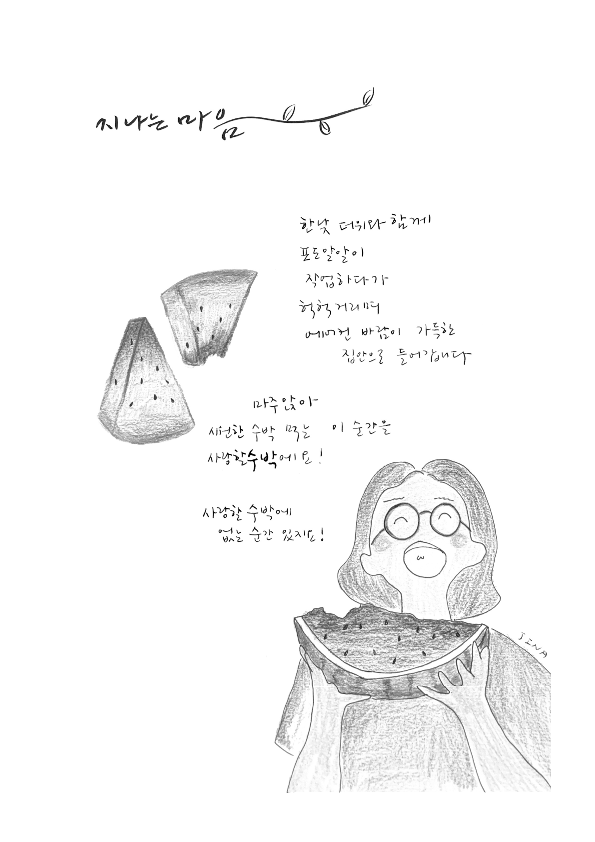 지나는 마음
한낮 더위와 함께
포도알알이
작업하다가
헉헉거리며
에어컨 바람이 가득한
집안으로 들어갑니다
마주앉아
시원한 수박 먹는 이 순간을
사랑할수박에요!
사랑할수박에
없는 순간 있지요!
SINA